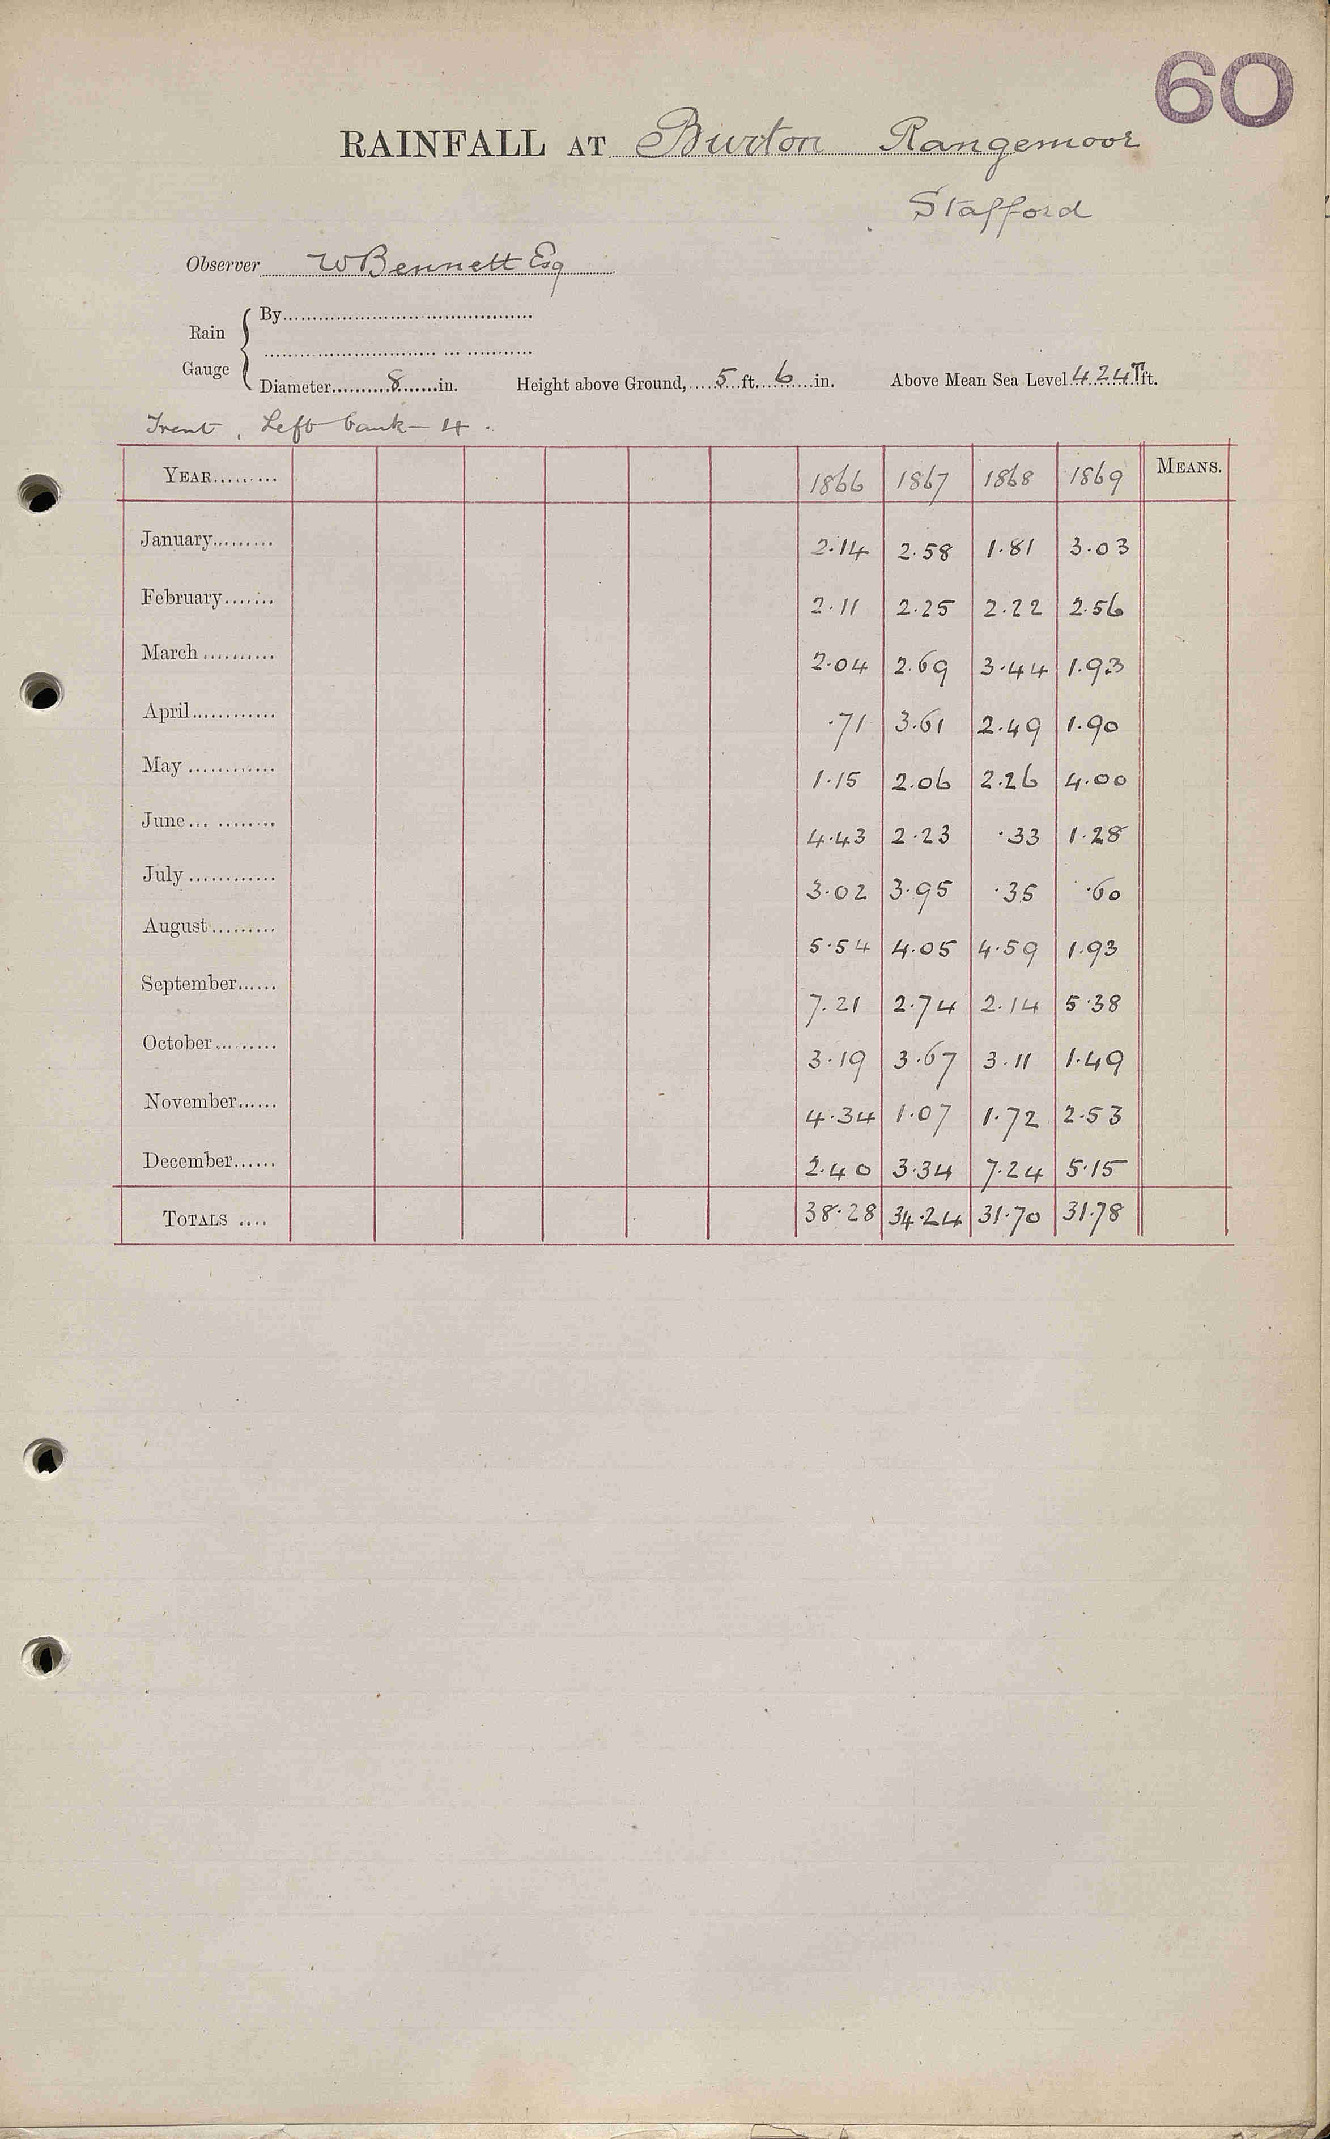 60
RAINFALL AT Burton Rangemoor
Stafford
Observer W Bennett Esq
Rain Gauge
By
Diameter 8 in. Height above Ground, 5 ft. 6 in. Above Mean Sea Level 424 T ft.
Trent, Left bank - 4.
YEAR 1866 1867 1868 1869 MEANS.
January 2.14 2.58 1.81 3.03
February 2.11 2.25 2.22 2.56
March 2.04 2.69 3.44 1.93
April .71 3.61 2.49 1.90
May 1.15 2.06 2.26 4.00
June 4.43 2.23 .33 1.28
July 3.02 3.95 .35 .60
August 5.54 4.05 4.59 1.93
September 7.21 2.74 2.14 5.38
October 3.19 3.67 3.11 1.49
November 4.34 1.07 1.72 2.53
December 2.40 3.34 7.24 5.15
TOTALS 38.28 34.24 31.70 31.78